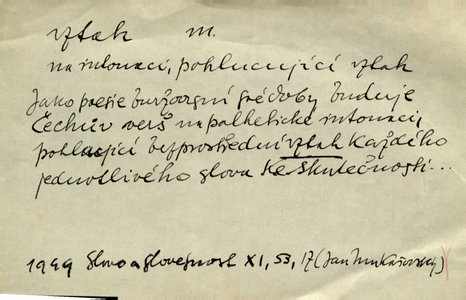 vztah m.
na intonaci, pohlcující vztah
Jako poesie buržoasní se doby buduje
Čechův verš na pathetické intonaci,
pohlcující bezprostřední vztah každého
jednotlivého slova ke skutečnosti...
1949 Slovo a slovesnost XI, 53, 17 (Jan Mukařovský)